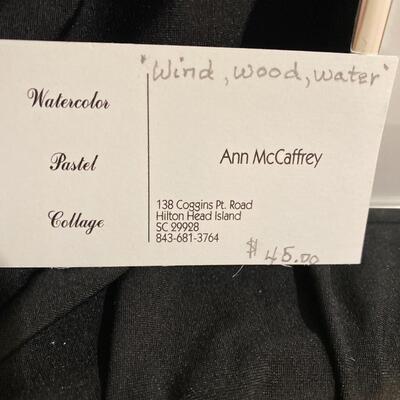 "Wind, wood, water"
Watercolor
Pastel
Collage
Ann McCaffrey
138 Coggins Pt. Road
Hilton Head Island
SC 29928
843-681-3764
$45.00